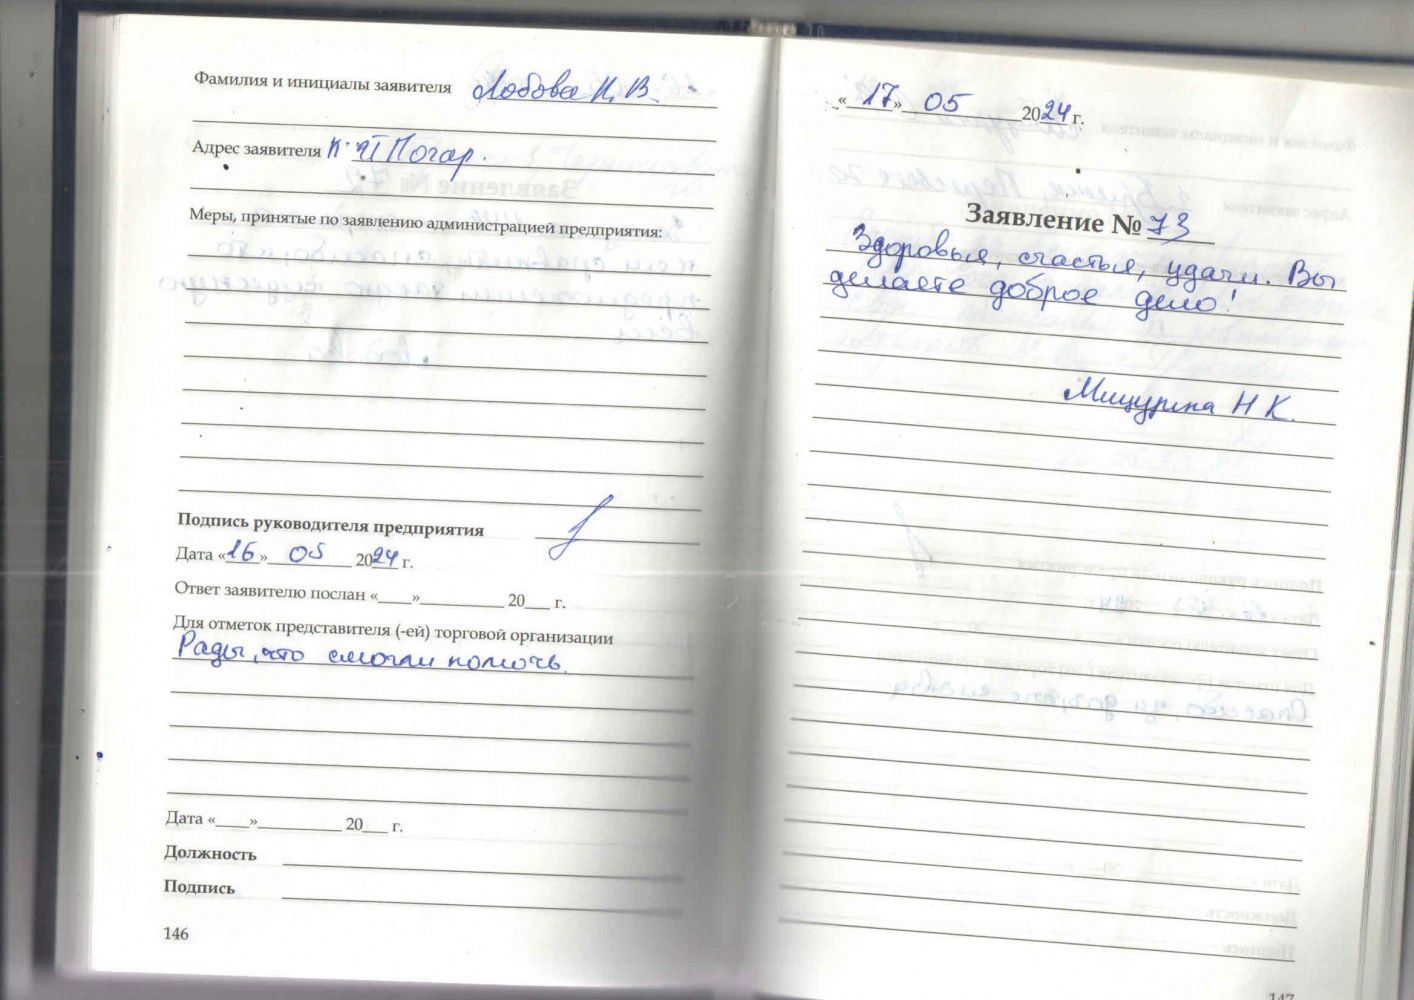 Фамилия и инициалы заявителя Лобова Н. В.
Адрес заявителя Погар.
Меры, принятые по заявлению администрацией предприятия:
Подпись руководителя предприятия
Дата «16» 05 2024 г.
Ответ заявителю послан «____»__________ 20___ г.
Для отметок представителя (-ей) торговой организации
Рады, что смогли помочь.
Дата «____»__________ 20___ г.
Должность
Подпись
146
«17» 05 2024 г.
Заявление № 73
Здоровья, счастья, удачи. Вы
делаете доброе дело!
Мишурина Н К.
147